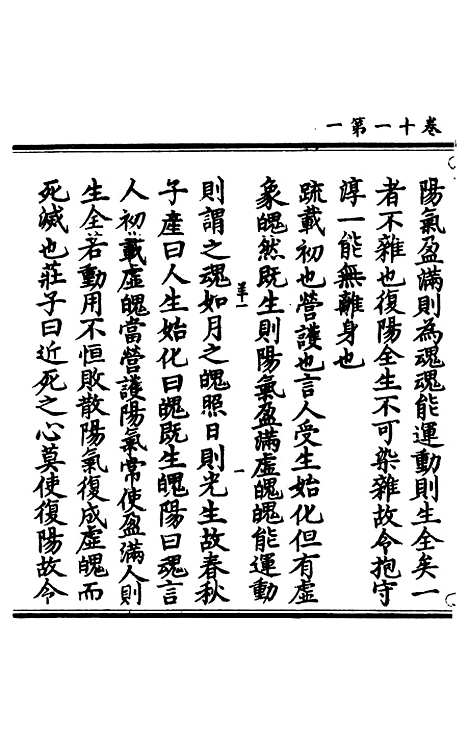 卷十一第一
陽氣盈滿則為魂魂能運動則生全矣一
者不雜也復陽全生不可染雜故令抱守
淳一能無離身也
䟽載初也營護也言人受生始化但有虛
象魄然既生則陽氣盈滿虛魄魄能運動
則謂之魂如月之魄照日則光生故春秋
子產曰人生始化曰魄既生魄陽曰魂言
人初載虛魄當營護陽氣常使盈滿人則
生全若動用不恒敗散陽氣復成虛魄而
死滅也莊子曰近死之心莫使復陽故令